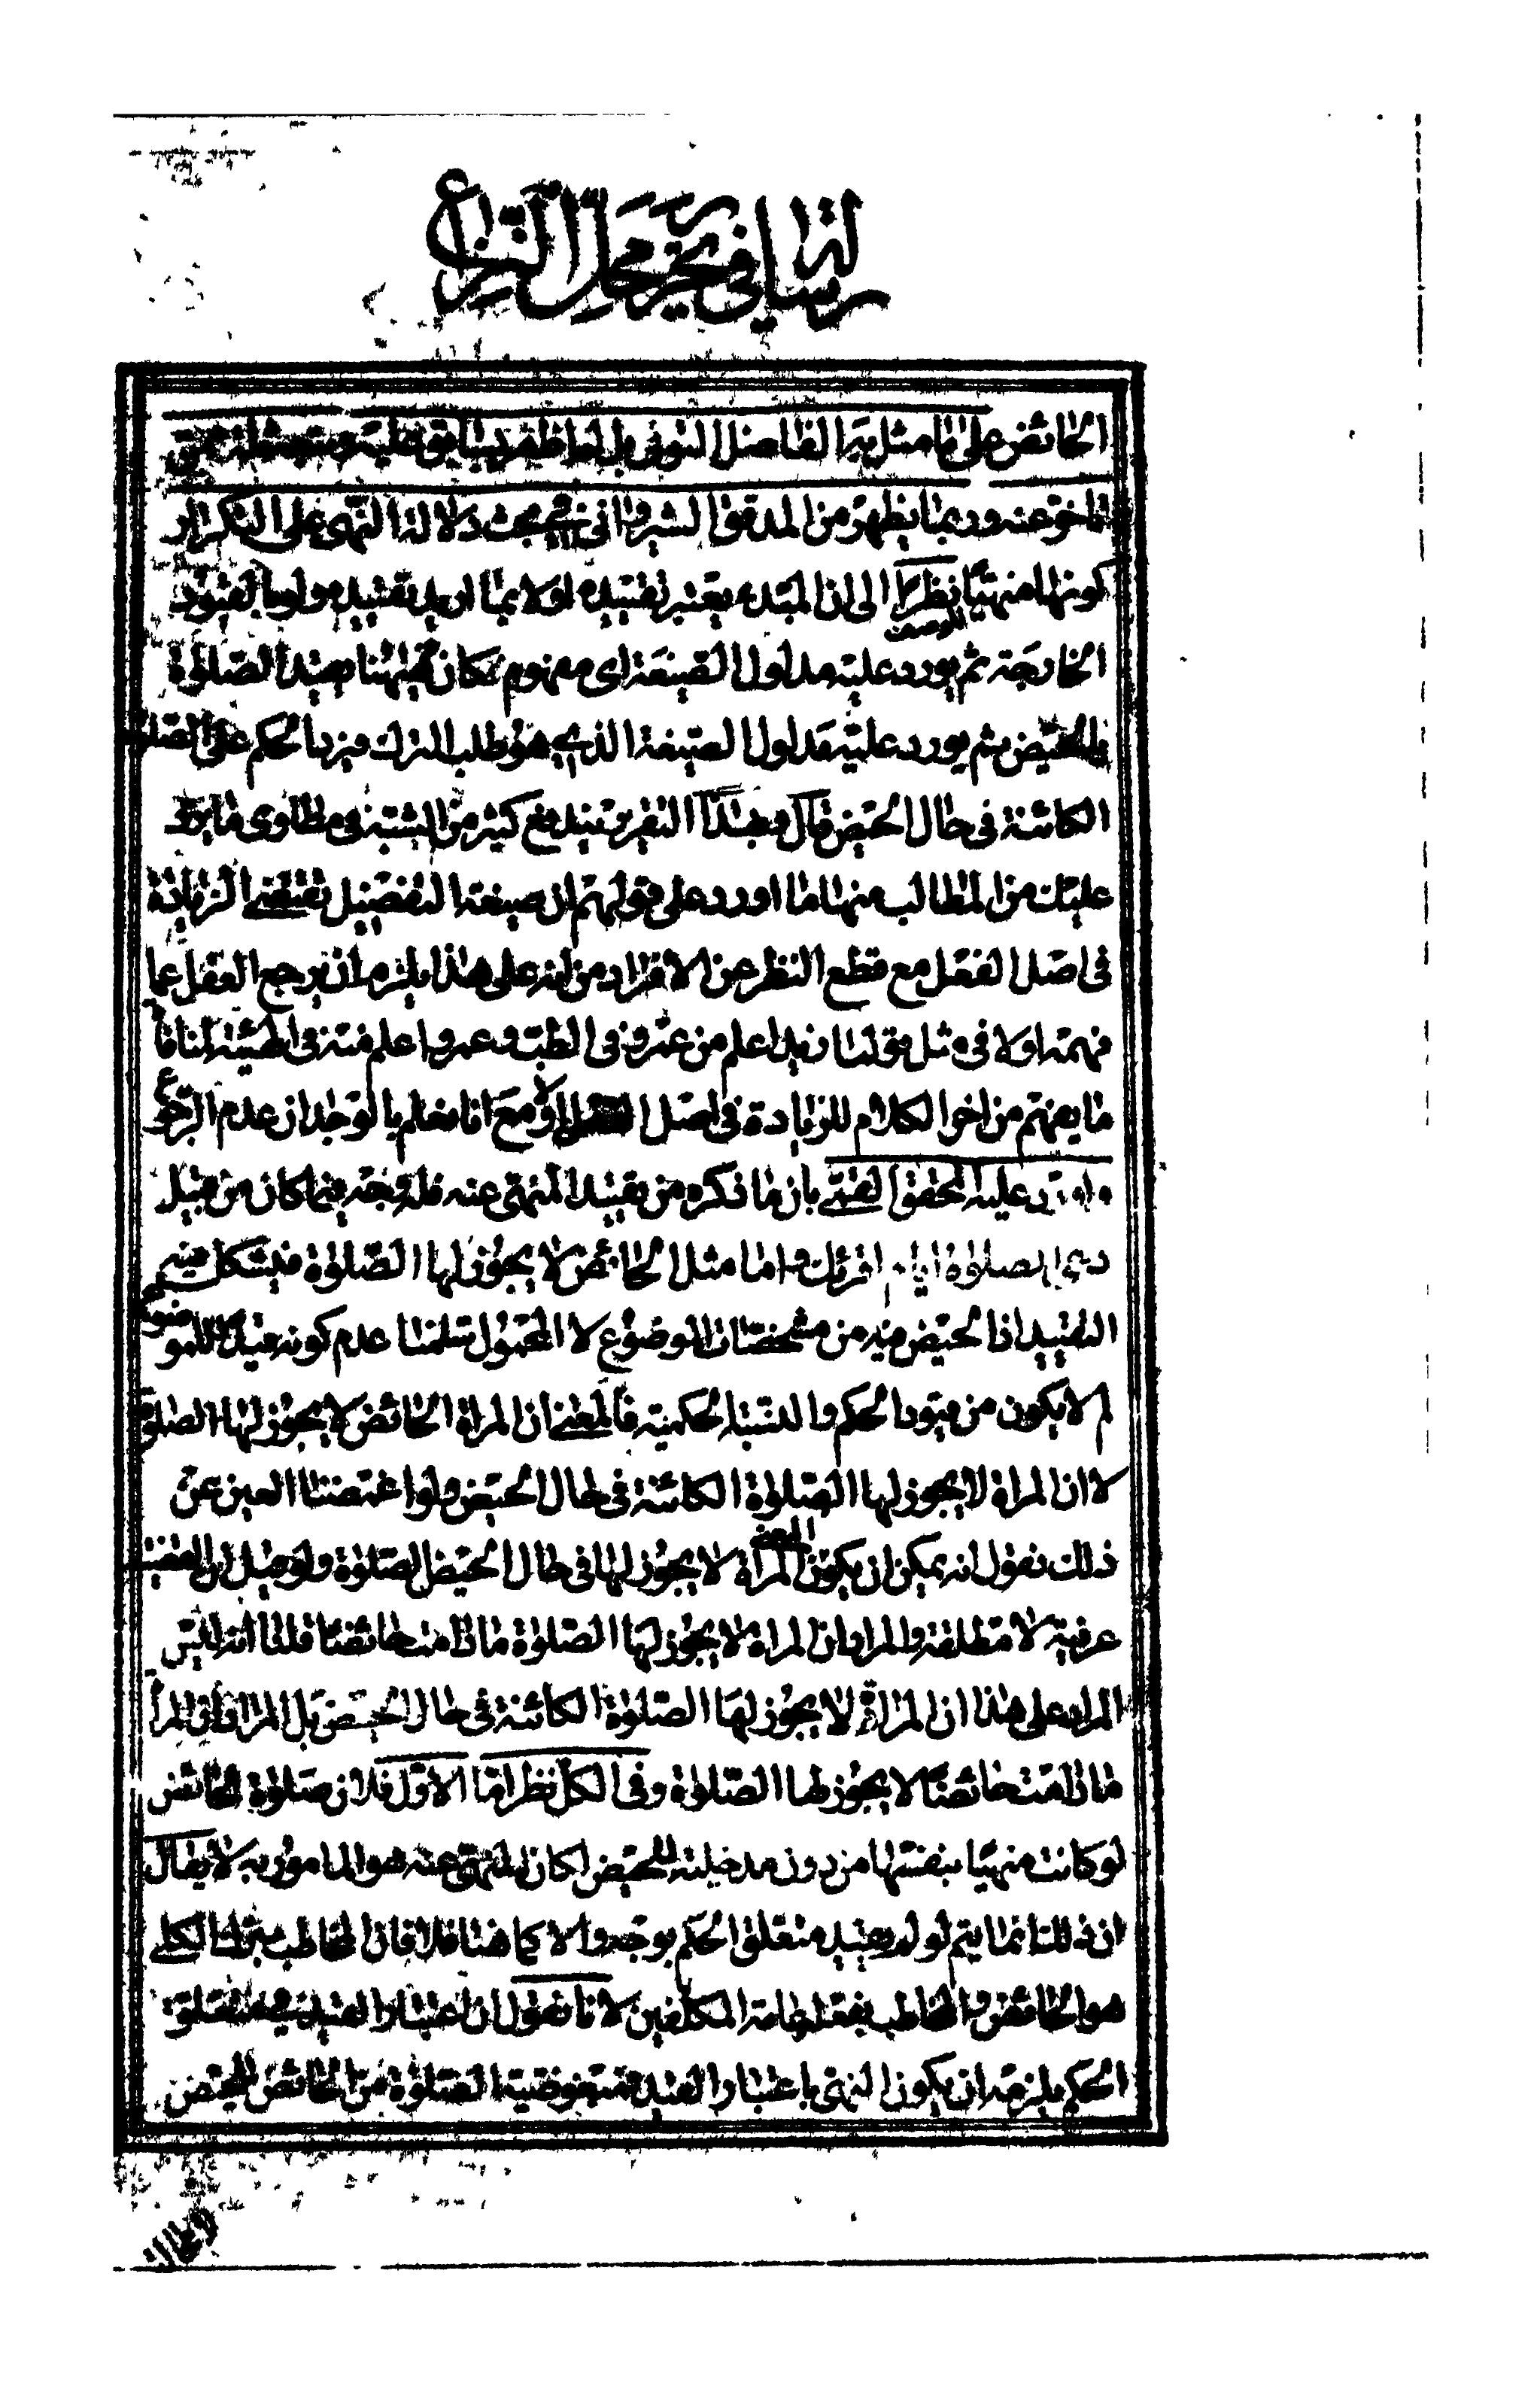 رسالة في تحرير محل النزاع
الحائض على ما مثل به الفاضل التوني بل
عنه وربما يظهر من المدقق الشيرواني في بحث دلالة النهي على التكرار
كونها منهيّا نظرا الى ان المبدء يعتبر تقييده اولا بما اريد تقييده به
الخارجة ثم يورد عليه مدلول الصيغة اى مفهوم كان فيهنا يقيد الصلوة
بالحيض ثم يورد عليه مدلول الصيغة الذي هو طلب الترك فيرد الحكم على الصلوة
الكائنة فى حال الحيض قال وهذا التقرير تقيد رفع كثير من الشبه فى مطاوى ما يرد
عليك من المطالب منها ما اورد على قولهم ان صيغة التفضيل تقتضى الزيادة
فى اصل الفعل مع قطع النظر عن الافراد من انه على هذا يلزم ان يرجع العقل عما
فهمه اولا فى مثل قولنا زيد اعلم من عمرو فى الطب وعمرو اعلم منه فى الهيئة لمنافاة
ما يفهم من اخر الكلام للزيادة فى اصل الفعل اولا مع انا نعلم بالوجدان عدم الرجوع
واورد عليه المحقق القمي بان ما ذكره من تقييد المنهى عنه فله وجه فيما كان من قبيل
دعى الصلوة ايام اقرائك واما مثل الحائض لا يجوز لها الصلوة فيشكل فيه
التقييد اذ الحيض فيه من مشخصات الموضوع لا المحمول سلمنا عدم كونه قيدا للموضوع
لم لا يكون من قيود الحكم والنسبة الحكمية فالمعنى ان المراة الحائض لا يجوز لها الصلوة
لا ان المراة لا يجوز لها الصلوة الكائنة فى حال الحيض ولو اغمضنا العين عن
ذلك نقول انه يمكن ان يكون المعنى المراة لا يجوز لها فى حال الحيض الصلوة ولو قيل ان القضية
عرفية لا مطلقة والمراد ان المراة لا يجوز لها الصلوة ما دامت حائضا قلنا انه ليس
المراد على هذا ان المراة لا يجوز لها الصلوة الكائنة فى حال الحيض بل المراد ان المراة
ما دامت حائضا لا يجوز لها الصلوة وفى الكل نظر اما الاول فلان صلوة الحائض
لو كانت منهيا بنفسها من دون مدخلية للحيض لكان المنهى عنه هو المامور به لا يقال
ان ذلك انما يتم لو لم يقيد متعلق الحكم بوجه والا كما هنا فلا فان المخاطب بترك الكلى
هو الحائض والمخاطب بفعله عامة المكلفين لانا نقول ان اعتبار القيد فى متعلق
الحكم يلزمه ان يكون النهى باعتبار القيد فمبغوضية الصلوة من الحائض للحيض